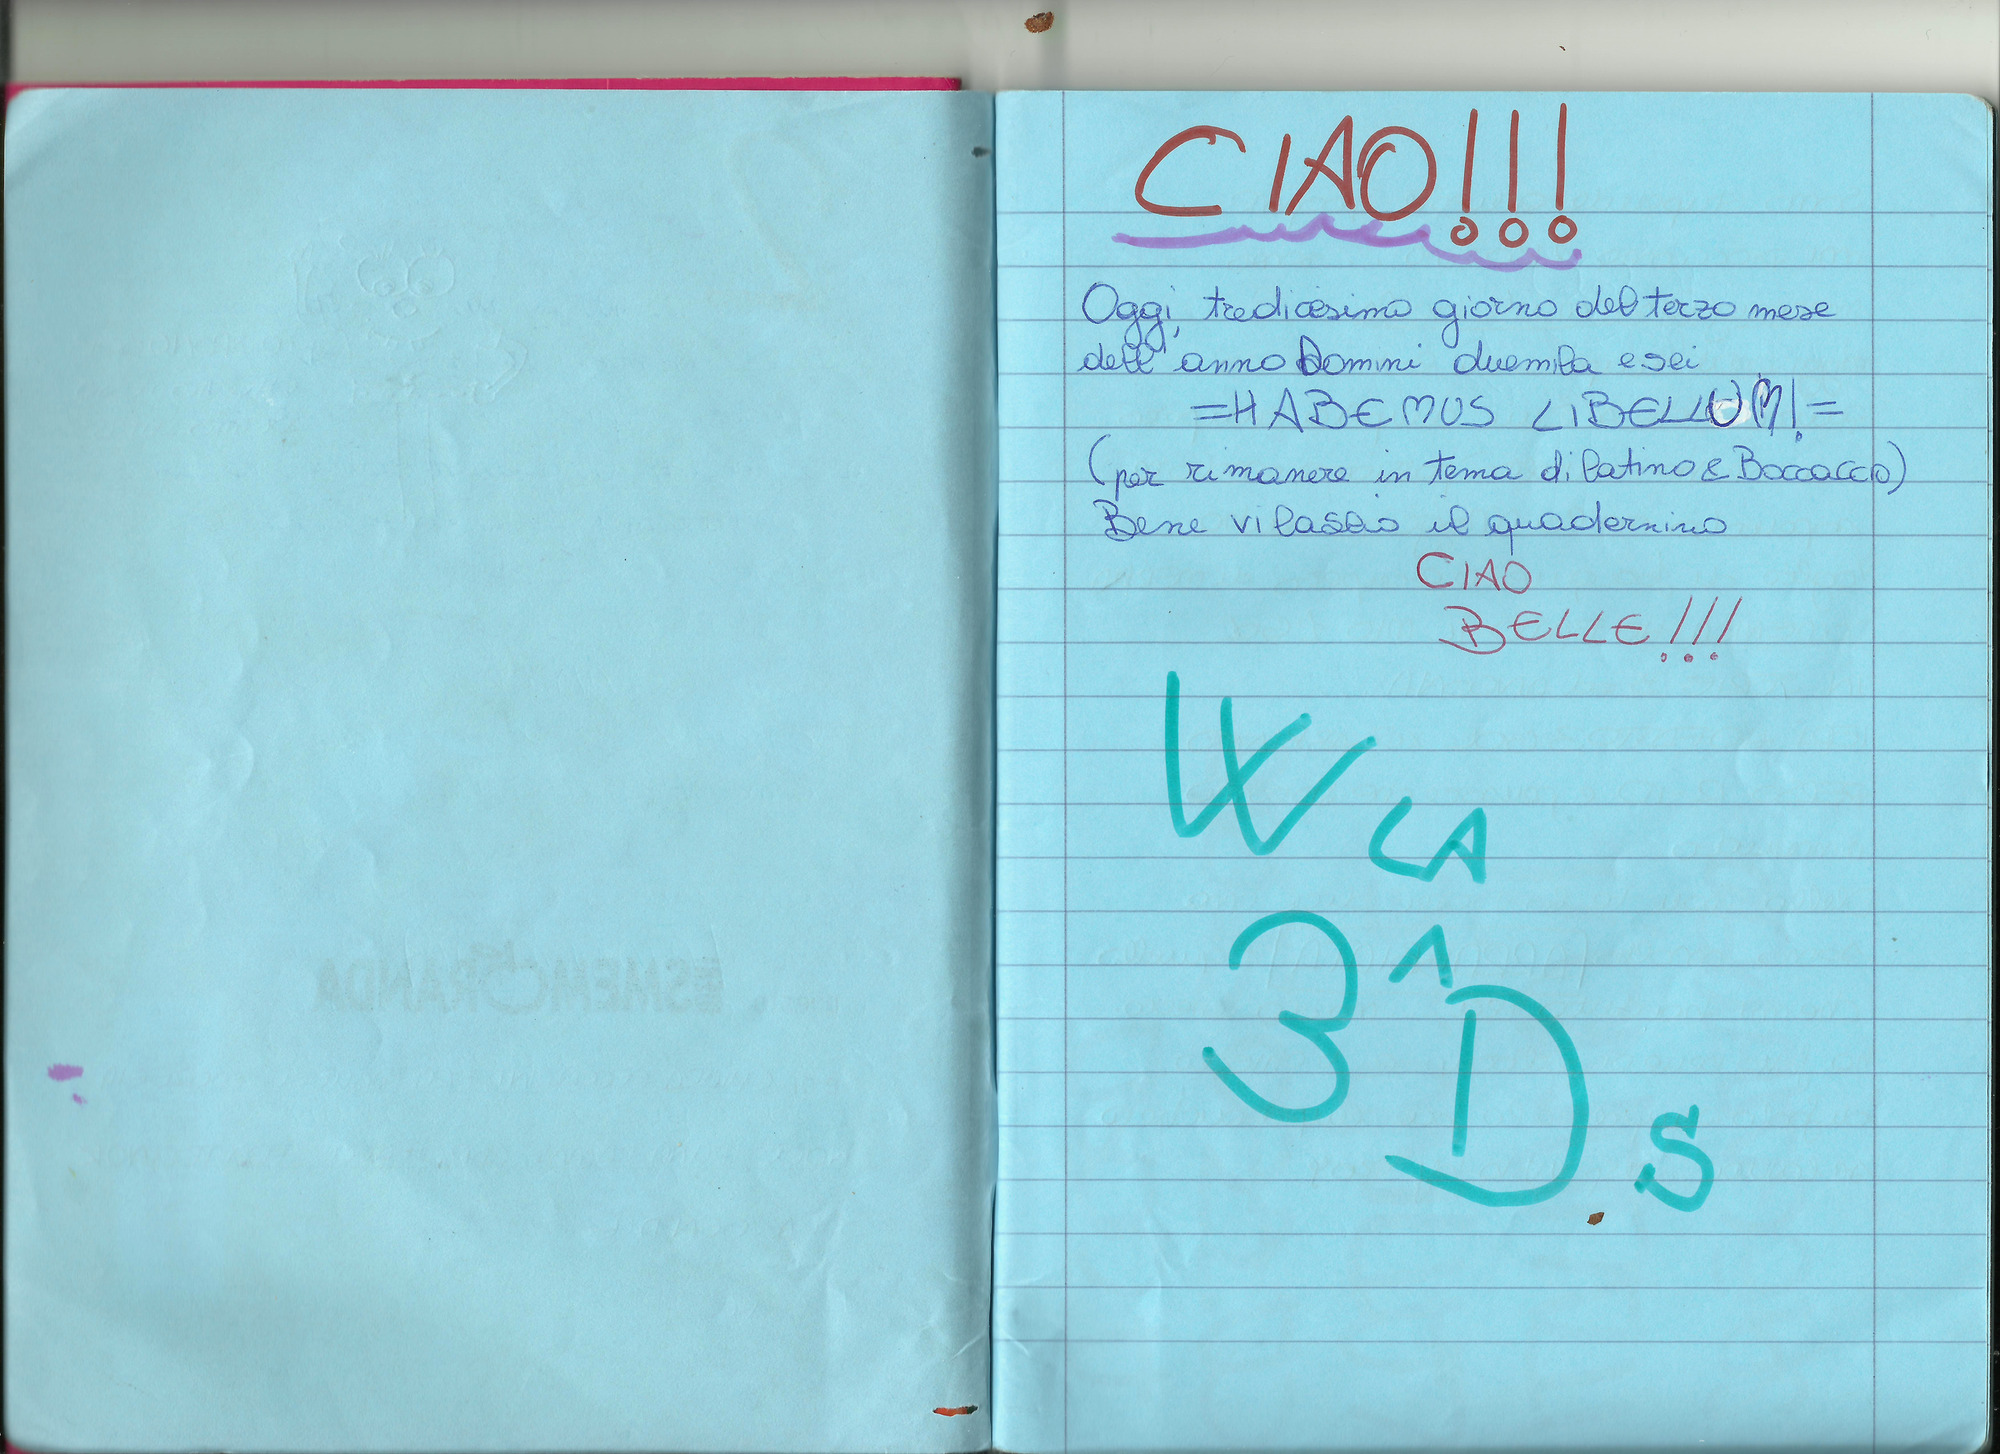 CIAO!!!
Oggi, tredicesimo giorno del terzo mese
dell'anno Domini duemila e sei
=HABEMUS LIBELLUM!=
(per rimanere in tema di latino & Boccaccio)
Bene vi lascio il quadernino
CIAO
BELLE!!!
W LA
3^D
S